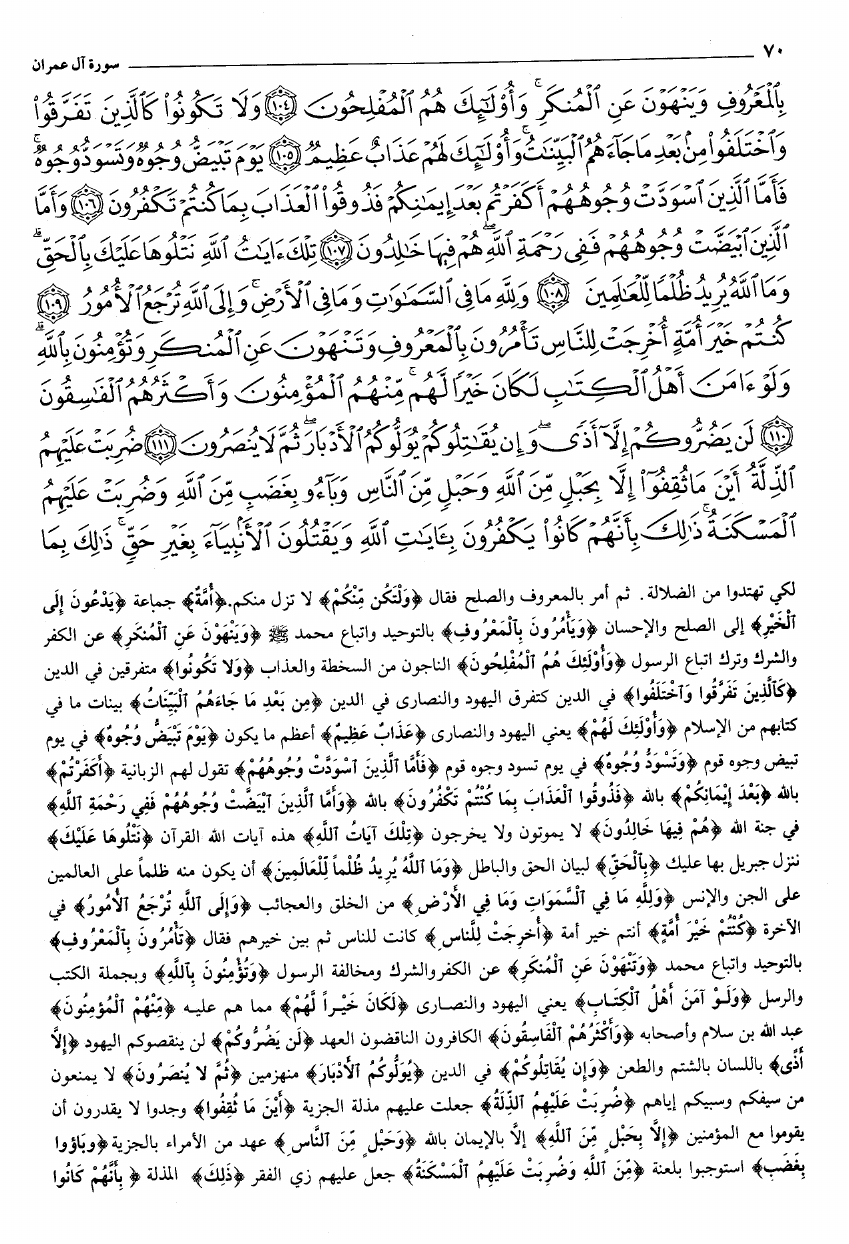 ٧٠
سورة آل عمران
بِالْمَعْرُوفِ وَيَنْهَوْنَ عَنِ الْمُنكَرِ ۚ وَأُولَٰئِكَ هُمُ الْمُفْلِحُونَ ﴿١٠٤﴾ وَلَا تَكُونُوا كَالَّذِينَ تَفَرَّقُوا
وَاخْتَلَفُوا مِنْ بَعْدِ مَا جَاءَهُمُ الْبَيِّنَاتُ ۚ وَأُولَٰئِكَ لَهُمْ عَذَابٌ عَظِيمٌ ﴿١٠٥﴾ يَوْمَ تَبْيَضُّ وُجُوهٌ وَتَسْوَدُّ وُجُوهٌ ۚ
فَأَمَّا الَّذِينَ اسْوَدَّتْ وُجُوهُهُمْ أَكَفَرْتُم بَعْدَ إِيمَانِكُمْ فَذُوقُوا الْعَذَابَ بِمَا كُنتُمْ تَكْفُرُونَ ﴿١٠٦﴾ وَأَمَّا
الَّذِينَ ابْيَضَّتْ وُجُوهُهُمْ فَفِي رَحْمَةِ اللَّهِ ۖ هُمْ فِيهَا خَالِدُونَ ﴿١٠٧﴾ تِلْكَ ءَايَاتُ اللَّهِ نَتْلُوهَا عَلَيْكَ بِالْحَقِّ ۗ
وَمَا اللَّهُ يُرِيدُ ظُلْمًا لِّلْعَالَمِينَ ﴿١٠٨﴾ وَلِلَّهِ مَا فِي السَّمَاوَاتِ وَمَا فِي الْأَرْضِ ۚ وَإِلَى اللَّهِ تُرْجَعُ الْأُمُورُ ﴿١٠٩﴾
كُنتُمْ خَيْرَ أُمَّةٍ أُخْرِجَتْ لِلنَّاسِ تَأْمُرُونَ بِالْمَعْرُوفِ وَتَنْهَوْنَ عَنِ الْمُنكَرِ وَتُؤْمِنُونَ بِاللَّهِ ۗ
وَلَوْ ءَامَنَ أَهْلُ الْكِتَابِ لَكَانَ خَيْرًا لَّهُم ۚ مِّنْهُمُ الْمُؤْمِنُونَ وَأَكْثَرُهُمُ الْفَاسِقُونَ
﴿١١٠﴾ لَن يَضُرُّوكُمْ إِلَّا أَذًى ۖ وَإِن يُقَاتِلُوكُمْ يُوَلُّوكُمُ الْأَدْبَارَ ثُمَّ لَا يُنصَرُونَ ﴿١١١﴾ ضُرِبَتْ عَلَيْهِمُ
الذِّلَّةُ أَيْنَ مَا ثُقِفُوا إِلَّا بِحَبْلٍ مِّنَ اللَّهِ وَحَبْلٍ مِّنَ النَّاسِ وَبَاءُو بِغَضَبٍ مِّنَ اللَّهِ وَضُرِبَتْ عَلَيْهِمُ
الْمَسْكَنَةُ ۚ ذَٰلِكَ بِأَنَّهُمْ كَانُوا يَكْفُرُونَ بِـَٔايَاتِ اللَّهِ وَيَقْتُلُونَ الْأَنْبِيَاءَ بِغَيْرِ حَقٍّ ۚ ذَٰلِكَ بِمَا
لكي تهتدوا من الضلالة. ثم أمر بالمعروف والصلح فقال ﴿وَلْتَكُن مِّنكُمْ﴾ لا تزل منكم.﴿أُمَّةٌ﴾ جماعة ﴿يَدْعُونَ إِلَى
ٱلْخَيْرِ﴾ إلى الصلح والإحسان ﴿وَيَأْمُرُونَ بِٱلْمَعْرُوفِ﴾ بالتوحيد واتباع محمد ﷺ ﴿وَيَنْهَوْنَ عَنِ ٱلْمُنكَرِ﴾ عن الكفر
والشرك وترك اتباع الرسول ﴿وَأُوْلَئِكَ هُمُ ٱلْمُفْلِحُونَ﴾ الناجون من السخطة والعذاب ﴿وَلاَ تَكُونُوا﴾ متفرقين في الدين
﴿كَٱلَّذِينَ تَفَرَّقُوا وَٱخْتَلَفُوا﴾ في الدين كتفرق اليهود والنصارى في الدين ﴿مِن بَعْدِ مَا جَاءَهُمُ ٱلْبَيِّنَاتُ﴾ بينات ما في
كتابهم من الإسلام ﴿وَأُوْلَئِكَ لَهُمْ﴾ يعني اليهود والنصارى ﴿عَذَابٌ عَظِيمٌ﴾ أعظم ما يكون ﴿يَوْمَ تَبْيَضُّ وُجُوهٌ﴾ في يوم
تبيض وجوه قوم ﴿وَتَسْوَدُّ وُجُوهٌ﴾ في يوم تسود وجوه قوم ﴿فَأَمَّا ٱلَّذِينَ ٱسْوَدَّتْ وُجُوهُهُمْ﴾ تقول لهم الزبانية ﴿أَكَفَرْتُمْ﴾
بالله ﴿بَعْدَ إِيْمَانِكُمْ﴾ بالله ﴿فَذُوقُوا ٱلْعَذَابَ بِمَا كُنْتُمْ تَكْفُرُونَ﴾ بالله ﴿وَأَمَّا ٱلَّذِينَ ٱبْيَضَّتْ وُجُوهُهُمْ فَفِي رَحْمَةِ ٱللَّهِ﴾
في جنة الله ﴿هُمْ فِيهَا خَالِدُونَ﴾ لا يموتون ولا يخرجون ﴿تِلْكَ آيَاتُ ٱللَّهِ﴾ هذه آيات الله القرآن ﴿نَتْلُوهَا عَلَيْكَ﴾
ننزل جبريل بها عليك ﴿بِٱلْحَقِّ﴾ لبيان الحق والباطل ﴿وَمَا ٱللَّهُ يُرِيدُ ظُلْماً لِّلْعَالَمِينَ﴾ أن يكون منه ظلماً على العالمين
على الجن والإنس ﴿وَلِلَّهِ مَا فِي ٱلسَّمَوَاتِ وَمَا فِي ٱلأَرْضِ﴾ من الخلق والعجائب ﴿وَإِلَى ٱللَّهِ تُرْجَعُ ٱلأُمُورُ﴾ في
الآخرة ﴿كُنْتُمْ خَيْرَ أُمَّةٍ﴾ أنتم خير أمة ﴿أُخْرِجَتْ لِلنَّاسِ﴾ كانت للناس ثم بين خيرهم فقال ﴿تَأْمُرُونَ بِٱلْمَعْرُوفِ﴾
بالتوحيد واتباع محمد ﴿وَتَنْهَوْنَ عَنِ ٱلْمُنكَرِ﴾ عن الكفر والشرك ومخالفة الرسول ﴿وَتُؤْمِنُونَ بِٱللَّهِ﴾ وبجملة الكتب
والرسل ﴿وَلَوْ آمَنَ أَهْلُ ٱلْكِتَابِ﴾ يعني اليهود والنصارى ﴿لَكَانَ خَيْراً لَّهُمْ﴾ مما هم عليه ﴿مِّنْهُمُ ٱلْمُؤْمِنُونَ﴾
عبد الله بن سلام وأصحابه ﴿وَأَكْثَرُهُمُ ٱلْفَاسِقُونَ﴾ الكافرون الناقضون العهد ﴿لَن يَضُرُّوكُمْ﴾ لن ينقصوكم اليهود ﴿إِلاَّ
أَذًى﴾ باللسان بالشتم والطعن ﴿وَإِن يُقَاتِلُوكُمْ﴾ في الدين ﴿يُوَلُّوكُمُ ٱلأَدْبَارَ﴾ منهزمين ﴿ثُمَّ لاَ يُنصَرُونَ﴾ لا يمنعون
من سيفكم وسبيكم إياهم ﴿ضُرِبَتْ عَلَيْهِمُ ٱلذِّلَّةُ﴾ جعلت عليهم مذلة الجزية ﴿أَيْنَ مَا ثُقِفُوا﴾ وجدوا لا يقدرون أن
يقوموا مع المؤمنين ﴿إِلاَّ بِحَبْلٍ مِّنَ ٱللَّهِ﴾ إلاَّ بالإيمان بالله ﴿وَحَبْلٍ مِّنَ ٱلنَّاسِ﴾ عهد من الأمراء بالجزية ﴿وبَاؤوا
بِغَضَبٍ﴾ استوجبوا بلعنة ﴿مِّنَ ٱللَّهِ وَضُرِبَتْ عَلَيْهِمُ ٱلْمَسْكَنَةُ﴾ جعل عليهم زي الفقر ﴿ذَلِكَ﴾ المذلة ﴿بِأَنَّهُمْ كَانُوا